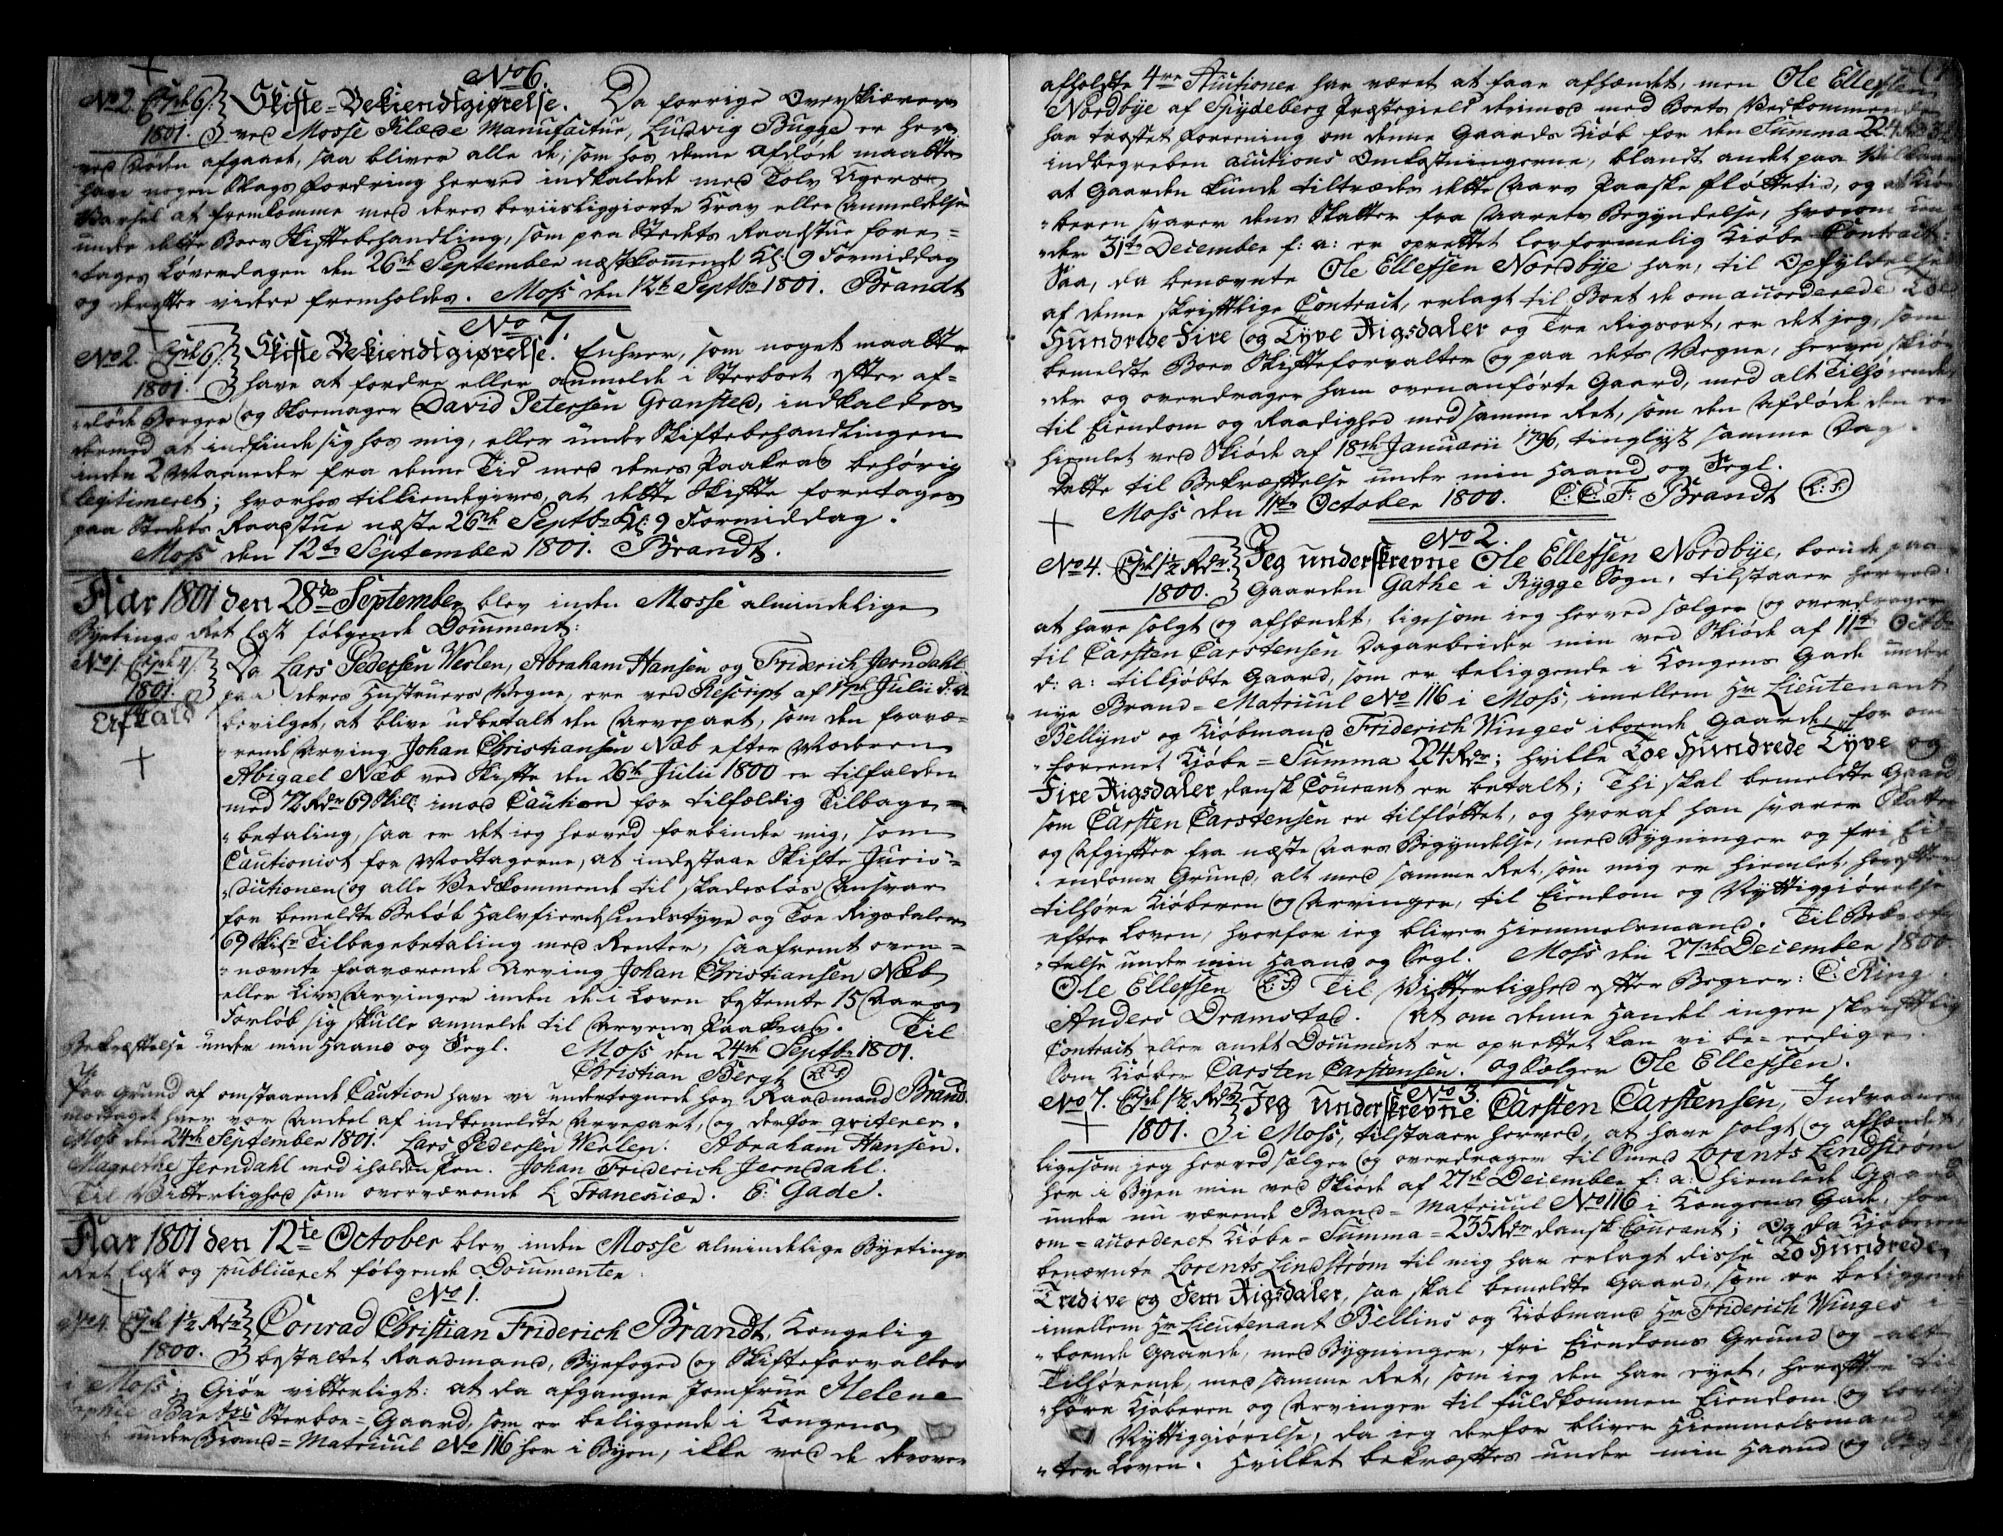 No 6.
No 2. Cph 6/. Skifte-Bekiendtgiørelse. Da forrige Overskiærer
1801. ved Mosse Klæde Manufactur, Ludvig Bugge er her
ved Døden afgaaet, saa bliver alle de, som hos denne Afdøde maatte
have nogen Slags Fordring herved indkaldede med Tolv Ugers
Varsel at fremkomme med deres beviisliggiorte Krav eller Anmeldelse
under dette Boes Skiftebehandling, som paa Stedets Raadstue fore-
tages Løverdagen den 26th September næstkommende Kl. 9 Formiddag
og derefter videre fremholdes. Moss den 12t Septbr 1801. Brandt
No 7.
No 2. Cph 6/. Skifte Bekiendtgiørelse. Enhver, som noget maatte
1801. have at fordre eller anmelde i Sterboet efter af-
døde Borger og Skomager David Petersen Gransted, indkaldes
dermed at indfinde sig hos mig, eller under Skiftebehandlingen
inden 2 Maaneder fra denne Tid med deres Paakrav behørig
legitimeret; hvorhos tilkiendegives, at dette Skifte foretages
paa Stedets Raadstue næste 26th Septbr Kl: 9 Formiddag.
Moss den 12te September 1801. Brandt.
Aar 1801 den 28de September blev inden Mosse almindelige
Byetings Ret læst følgende Document:
No 1. Cph 4/. Da Lars Pedersen Verlen, Abraham Hansen og Friderich Jerndahl
1801. paa deres Hustruers Vegne, ere ved Rescript af 17th Julii d. a.
bevilget, at blive udbetalt den Arvepart, som den fravæ-
rende Arving Johan Christiansen Næb efter Moderen
Abigael Næb ved Skifte den 26th Julii 1800 er tilfalden
med 72 Rdr 69 Skill imod Caution for tilfældig Tilbage-
betaling, saa er det ieg herved forbinder mig, som
Cautionist for Modtagerne, at indestaae Skifte Juris-
dictionen og alle Vedkommende til skadesløs Ansvar
for bemeldte Beløb Halvfierdsindstyve og Toe Rigsdaler
69 Skilr Tilbagebetaling med Renter, saafremt oven-
nævnte fraværende Arving Johan Christiansen Næb,
eller Livs Arvinger inden de i Loven bestemte 15 Aars
Forløb sig skulle anmelde til Arvens Paakrav. Til
Bekræftelse under min Haand og Segl. Moss den 24th Septbr 1801.
Christian Bergh (L.S.)
Paa Grund af omstaaende Caution have vi undertegnede hos Raadmand Brandt
modtaget hver vor Andel af indbemeldte Arvepart, og derfor qviterer.
Moss den 24th September 1801. Lars Pedersen Verlen. Abraham Hansen.
Magrethe Jerndahl med iholden Pen. Johan Friderich Jerndahl.
Til Vitterlighed som overværende L Francisiæ. E: Gade.
Aar 1801 den 12te October blev inden Mosse almindelige Byetings
Ret læst og publiceret følgende Documenter
No 1.
No 4. Cph 1½ Rdr Conrad Christian Friderich Brandt, Kongelig
1800. bestaltet Raadmand, Byefoged og Skifteforvalter
i Moss, Giør vitterligt: at da afgangne Jomfrue Helene
Sophie Sterboe-Gaard, som er beliggende i Kongens
under Brand-Matricul No 116 her i Byen, ikke ved de derover
afholdte 4re Auctioner har været at faae afhændet, men Ole Ellefsen
Nordbye af Spydeberg Præstegield derimod med Boets Vedkommende
har truffet Foreening om denne Gaards Kiøb for den Summa 224 Rdr
indbegreben Auctions Omkostningerne, blandt andet paa Vilkaar
at Gaarden kunde tiltrædes dette Aars Paaske fløttetid, og at Kiø-
beren svarer dens Skatter fra Aarets Begyndelse, hvorom un-
der 31te December f: a: er oprettet lovformelig Kiøbe-Contract:
Saa, da benævnte Ole Ellefsen Nordbye har, til Opfyldelse
af denne skriftlige Contract, erlagt til Boet de omaccorderede Toe
Hundrede Fire og Tyve Rigsdaler og Tre Rigsort, er det jeg, som
bemeldte Boes Skifteforvalter og paa dets Vegne, herved skiø-
der og overdrager ham ovenanførte Gaard, med alt Tilhørende
til Eiendom og Raadighed med samme Ret, som den Afdøde den er
hiemlet ved Skiøde af 18th Januarii 1796, tinglyst samme Dag.
Dette til Bekræftelse under min Haand og Segl.
Moss den 11te October 1800. C. C. F. Brandt (L.S.)
No 2.
No 4. Cph 1½ Rdr. Jeg underskrevne Ole Ellefsen Nordbye, boende paa
1800. Gaarden Gathe i Rygge Sogn, tilstaaer herved
at have solgt og afhændet, ligesom ieg herved sælger og overdrager
til Carsten Carstensen Dagarbeider min ved Skiøde af 11te Octbr
d: a: tilkjøbte Gaard, som er beliggende i Kongens Gade under
nye Brand-Matricul No 116 i Moss, imellem Hr Lieutenant
Bellyns og Kiøbmand Friderich Winges iboende Gaarde, for om
foreenet Kjøbe-Summa 224 Rdr; hvilke Toe Hundrede Tyve og
Fire Rigsdaler dansk Courant er betalt; Thi skal bemeldte Gaard
som Carsten Carstensen er tilfløttet, og hvoraf han svarer Skatter
og Afgifter fra næste Aars Begyndelse, med Bygninger og fri Ei-
endoms Grund, alt med samme Ret, som mig er hiemlet, herefter
tilhøre Kiøberen og Arvinger, til Eiendom og Nyttiggiørelse
efter Loven, hvorfor ieg bliver Hiemmelsmand. Til Bekræf-
telse under min Haand og Segl. Moss den 27th December 1800.
Ole Ellefsen (L.S.) Til Vitterlighed efter Begier: C. Ring.
Anders Dramstad. At om denne Handel ingen skriftlig
Contract eller andet Document er oprettet kan vi be-eedige
Som Kiøber Carsten Carstensen. og Sælger Ole Ellefsen.
No 3.
No 7. Cph 1½ Rdr Jeg underskrevne Carsten Carstensen, Indvaaner
1801. i Moss, tilstaaer herved, at have solgt og afhændet
ligesom jeg herved sælger og overdrager til Smed Lorents Lindstrøm
her i Byen min ved Skiøde af 27th December f: a: hiemlede Gaard
under nu værende Brand-Matricul No 116 i Kongens Gade, for
om-accorderet Kiøbe-Summa-235 Rdr dansk Courant; Og da Kiøberen
benævnte Lorents Lindstrøm til mig har erlagt disse To Hundrede,
Tredive og Fem Rigsdaler, saa skal bemeldte Gaard, som er beliggende
imellem Hr Lieutenant Bellins og Kiøbmand Hr Friderich Winges i-
boende Gaarde, med Bygninger, fri Eiendoms Grund og alt
Tilhørende, med samme Ret, som ieg den har eyet, herefter til-
høre Kiøberen og Arvinger til fuldkommen Eiendom og lovlig
Nyttiggiørelse, da ieg derfor bliver Hiemmelsmand ef-
ter Loven. Hvilket bekræftes under min Haand og